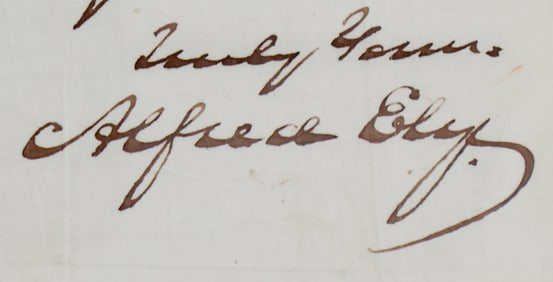 Truly Yours
Alfred Ely.